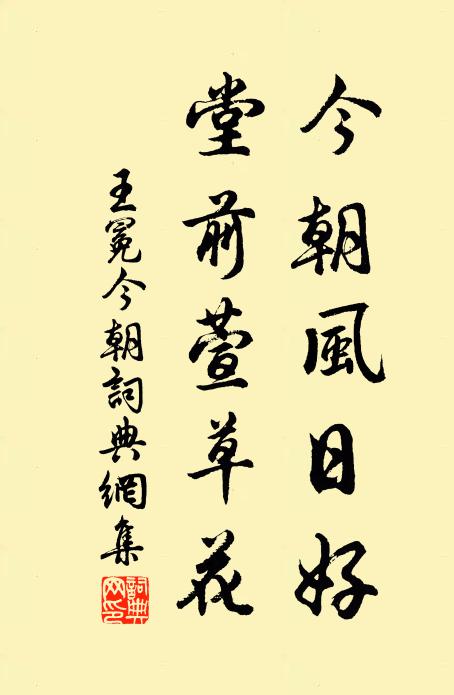 今朝風日好
堂前萱草花
王冕今朝詞典網集
詞典網印